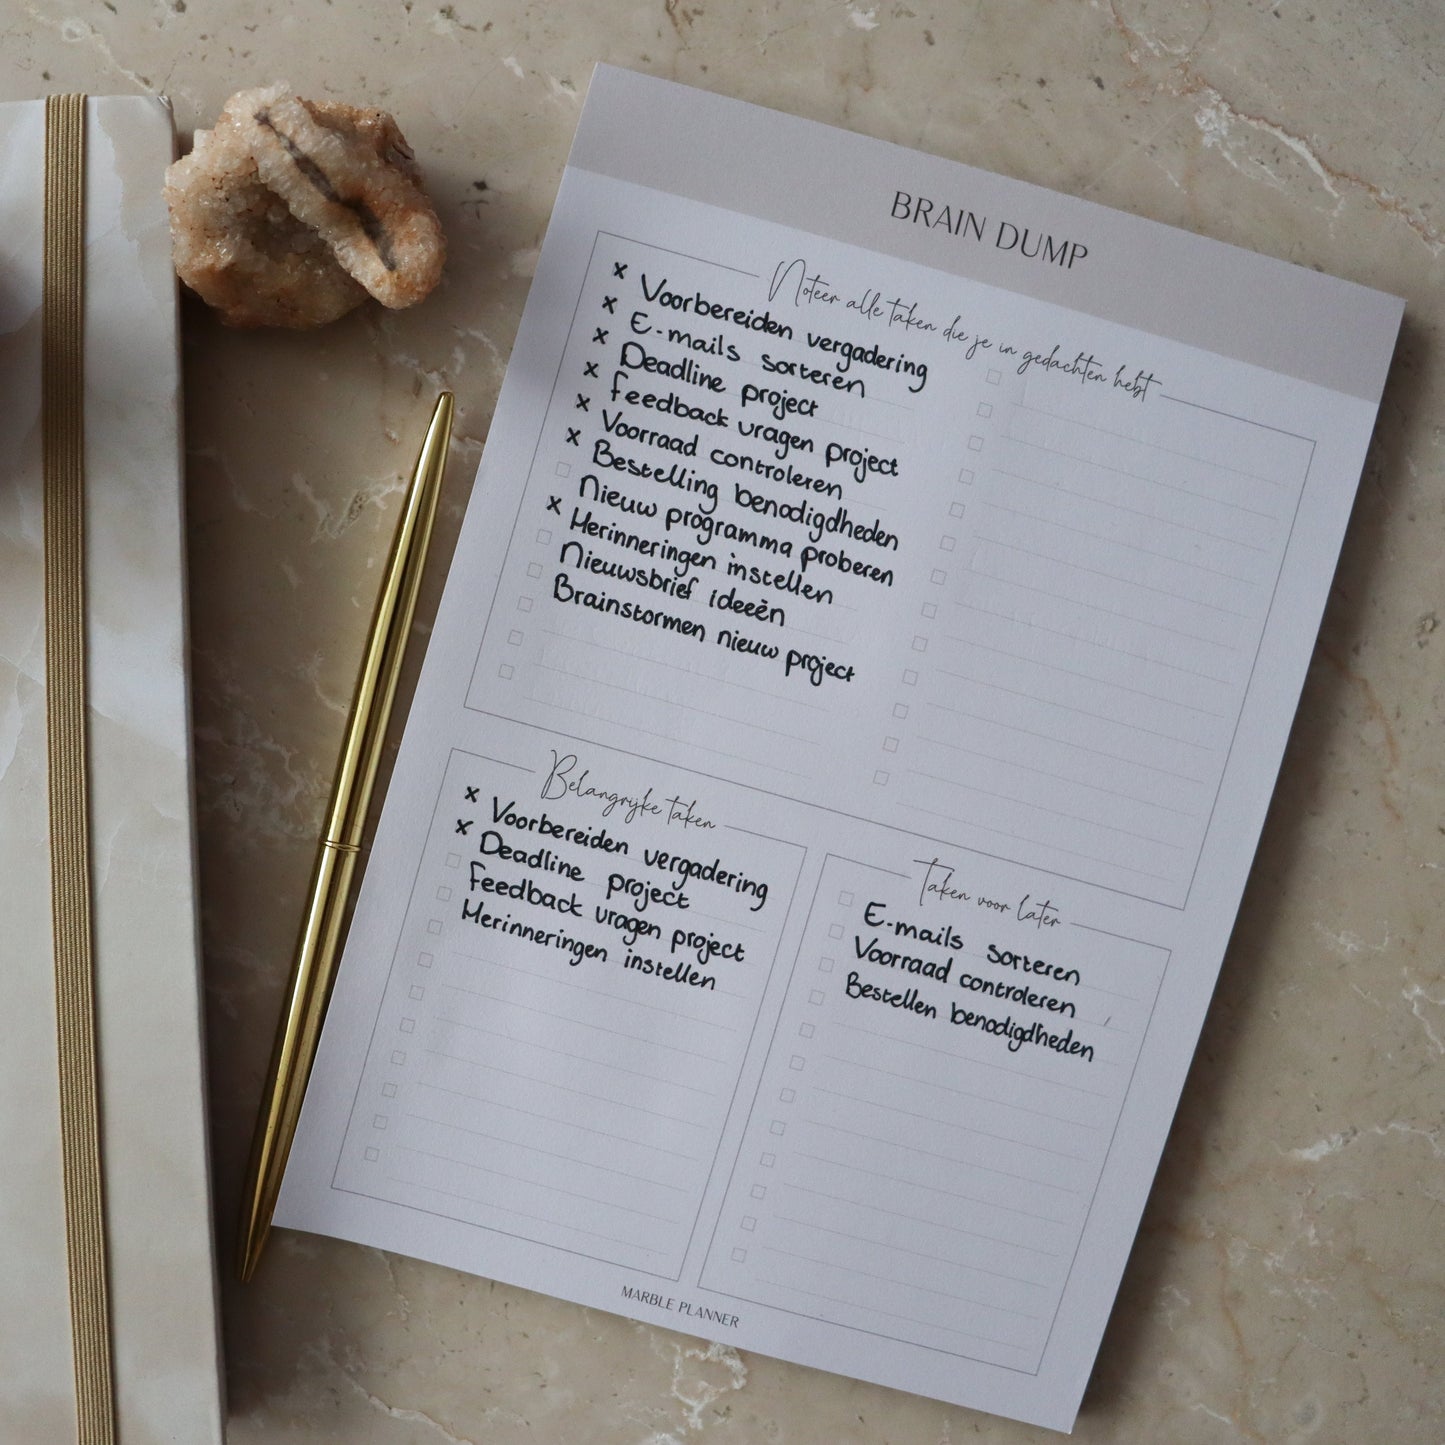 BRAIN DUMP
Noteer alle taken die je in gedachten hebt
x Voorbereiden vergadering
x E-mails sorteren
x Deadline project
x Feedback vragen project
x Voorraad controleren
x Bestelling benodigdheden
Nieuw programma proberen
x Herinneringen instellen
Nieuwsbrief ideeën
Brainstormen nieuw project
Belangrijke taken
x Voorbereiden vergadering
x Deadline project
Feedback vragen project
Herinneringen instellen
Taken voor later
E-mails sorteren
Voorraad controleren
Bestellen benodigdheden
MARBLE PLANNER